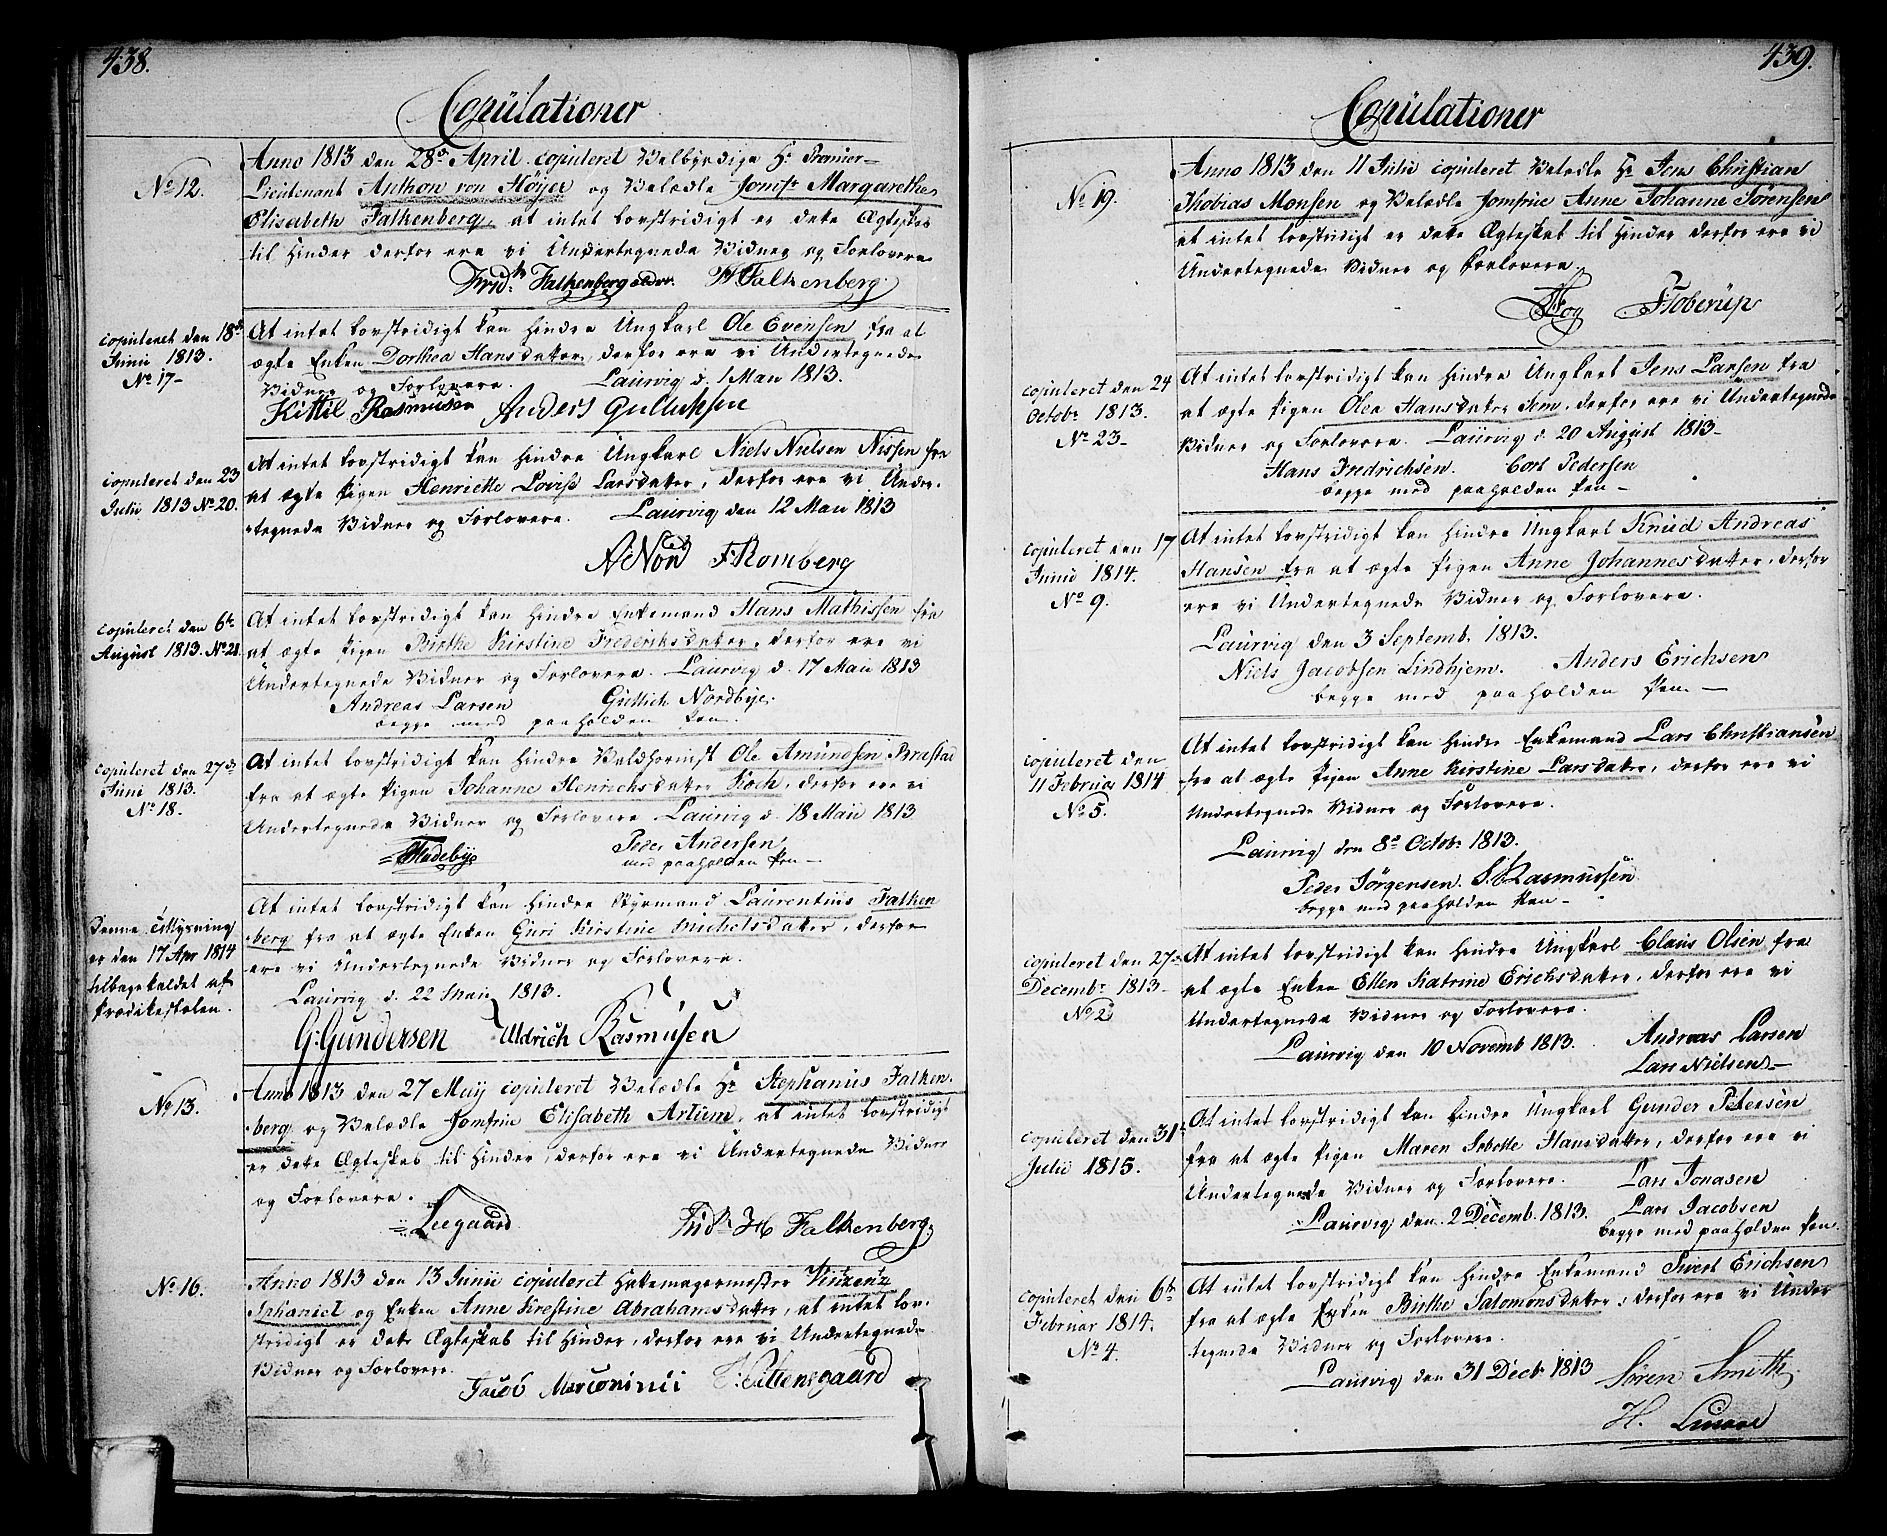 438.
Copulationer
No 12.
Anno 1813 den 28de April copuleret Velbyrdige Hr Premier-
Lieutenant Anthon von Høyer og Velædle Jomfr Margarethe
Elisabeth Falkenberg, at intet lovstridigt er dette Ægteskab
til Hinder derfor ere vi Undertegnede Vidner og Forlovere
Fridch Falkenberg ældre. Falkenberg.
copuleret den 18de
Junii 1813.
No 17-
At intet lovstridigt kan hindre Ungkarl Ole Evensen fra at
ægte Enken Dorthea Hansdatter, derfor ere vi Undertegnede
Vidner og Forlovere. Laurvig d. 1 Maii 1813.
Kittil Rasmusen Anders Gulluksen
copuleret den 23
Julii 1813 No 20.
At intet lovstridigt kan hindre Ungkarl Niels Nielsen Nissen fra
at ægte Pigen Henriette Lovise Larsdatter, derfor ere vi Under-
tegnede Vidner og Forlovere. Laurvig den 12 Maii 1813
A Nord F. Romberg
copuleret den 6te
August 1813. No 21.
At intet lovstridigt kan hindre Enkemand Hans Mathissen fra
at ægte Pigen Birthe Kirstine Frederiksdatter, derfor ere vi
Undertegnede Vidner og Forlovere. Laurvig d. 17 Maii 1813
Andreas Larsen Gullich Nordbye.
begge med paaholden Pen.
copuleret den 27de
Juni 1813.
No 18.
At intet lovstridigt kan hindre Valdhornist Ole Amundsen Brastad
fra at ægte Pigen Johanne Henrichsdatter Koch, derfor ere vi
Undertegnede Vidner og Forlovere Laurvig d. 18 Maii 1813
Peder Andersen
med paaholden Pen-
Denne Tillysning
er den 17 Apr 1814
tilbagekaldet af
Prædikestolen.
At intet lovstridigt kan hindre Styrmand Laurentius Falken
berg fra at ægte Enken Guri Kirstine Michelsdatter, derfor
ere vi Undertegnede Vidner og Forlovere.
Laurvig d. 22 Maii 1813.
G: Gundersen Uldrich Rasmusen
No 13.
Anno 1813 den 27 May copuleret Velædle Hr Stephanus Falken-
berg og Velædle Jomfrue Elisabeth Artum, at intet lovstridigt
er dette Ægteskab til Hinder, derfor ere vi Undertegnede Vidner
og Forlovere.
Leegaard Frid: H Falkenberg.
No 16.
Anno 1813 den 13 Junii copuleret Hattemagermester Vinzenz
og Enken Anne Kirestine Abrahamsdatter, at intet lov-
stridigt er dette Ægteskab til Hinder, derfor ere vi Undertegnede
Vidner og Forlovere.
Jacob
439.
Copulationer
No 19.
Anno 1813 den 11 Julii copuleret Velædle Hr Jens Christian
Thobias Monsen og Velædle Jomfrue Anne Johanne Sørensen
at intet lovstridigt er dette Ægteskab til Hinder derfor ere vi
Undertegnede Vidner og Forlovere.
Floberup
copuleret den 24
Octobr 1813.
No 23-
At intet lovstridigt kan hindre Ungkarl Jens Larsen fra
at ægte Pigen Olea Hansdatter Sem, derfor ere vi Undertegnede
Vidner og Forlovere. Laurvig d. 20 August 1813-
Hans Fredrichsen. Cort Pedersen
begge med paaholden Pen-
copuleret den 17
Junii 1814.
No 9.
At intet lovstridigt kan hindre Ungkarl Knud Andreas
Hansen fra at ægte Pigen Anne Johannesdatter, derfor
ere vi Undertegnede Vidner og Forlovere.
Laurvig den 3 Septemb. 1813.
Niels Jacobsen Lindhjem. Anders Erichsen
begge med paaholden Pen.-
copuleret den
11 Februar 1814
No 5.
At intet lovstridigt kan hindre Enkemand Lars Christiansen
fra at ægte Pigen Anne Kirstine Larsdatter, derfor ere vi
Undertegnede Vidner og Forlovere.
Laurvig den 8de Octobr 1813.
Peder Jörgensen. Rasmussen
begge med paaholden Pen-
copuleret den 27de
Decembr 1813-
No 2
At intet lovstridigt kan hindre Ungkarl Claus Olsen fra
at ægte Enken Ellen Katrine Erichsdatter, derfor ere vi
Undertegnede Vidner og Forlovere.
Laurvig den 10 Novemb 1813. Andreas Larsen
Lars Nielsen-
copuleret den 31te
Julii 1815.
At intet lovstridigt kan hindre Ungkarl Gunder Petersen
fra at ægte Pigen Maren Hansdatter, derfor ere vi
Undertegnede Vidner og Forlovere. Lars Jonasen
Laurvig den 2 Decemb. 1813. Lars Jacobsen
begge med paaholden Pen.
copuleret den 6te
Februar 1814.
No 4.
At intet lovstridigt kan hindre Enkemand Sivert Erichsen
fra at ægte Enken Birthe Salomonsdatter, derfor ere vi Under
tegnede Vidner og Forlovere.
Laurvig den 31 Decbr 1813 Søren Smith
H.